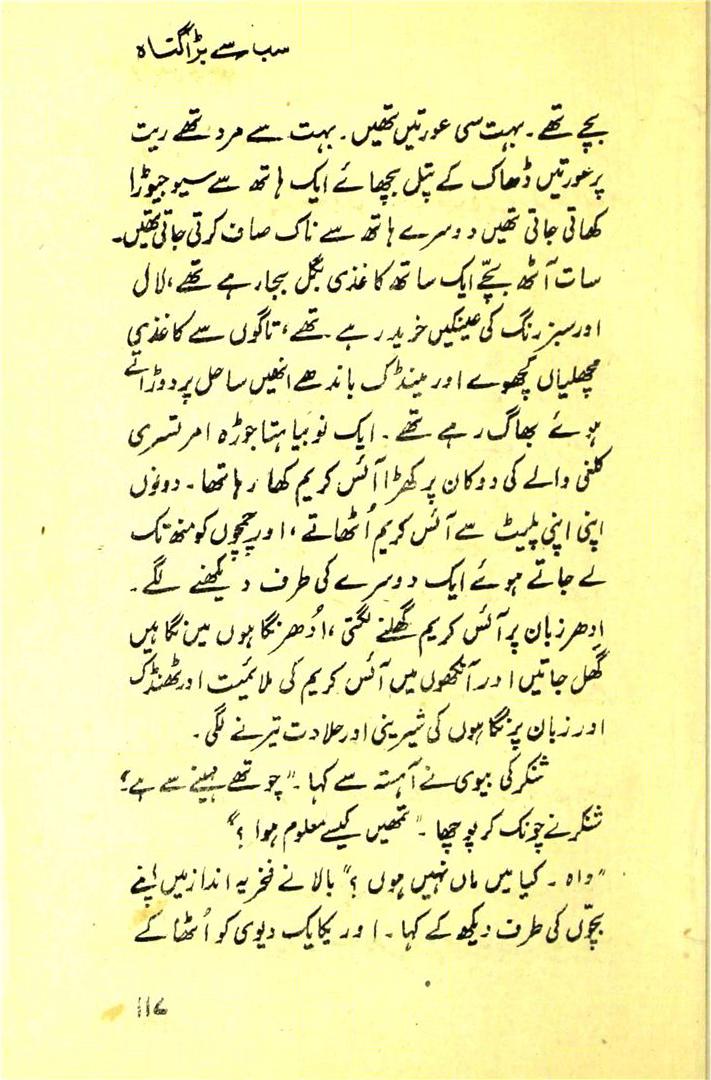 سب سے بڑا گناہ
بچے تھے۔ بہت سی عورتیں تھیں۔ بہت سے مرد تھے ریت
پر عورتیں ڈھاک کے پتل بچھائے ایک ہاتھ سے سیو جیوڑا
کھاتی جاتی تھیں دوسرے ہاتھ سے ناک صاف کرتی جاتی تھیں۔
سات آٹھ بچّے ایک ساتھ کاغذی بگل بجا رہے تھے، لال
اور سبز رنگ کی عینکیں خرید رہے تھے، تاگوں سے کاغذی
مچھلیاں کچھوے اور مینڈک باندھے انھیں ساحل پر دوڑاتے
ہوئے بھاگ رہے تھے۔ ایک نوبیاہتا جوڑہ امرتسری
کلفی والے کی دوکان پر کھڑا آئس کریم کھا رہا تھا۔ دونوں
اپنی اپنی پلیٹ سے آئس کریم اُٹھاتے، اور چمچوں کو منھ تک
لے جاتے ہوئے ایک دوسرے کی طرف دیکھنے لگے۔
اِدھر زبان پر آئس کریم گھلنے لگتی، اُدھر نگاہوں میں نگاہیں
گھل جاتیں اور آنکھوں میں آئس کریم کی ملائمیت اور ٹھنڈک
اور زبان پر نگاہوں کی شیرینی اور حلاوت تیرنے لگی۔
شنکر کی بیوی نے آہستہ سے کہا۔ "چوتھے مہینے سے ہے۔"
شنکر نے چونک کر پوچھا۔ "تمھیں کیسے معلوم ہوا؟"
"واہ۔ کیا میں ماں نہیں ہوں؟" بالا نے فخریہ انداز میں اپنے
بچّوں کی طرف دیکھ کے کہا۔ اور یکایک دیوی کو اُٹھا کے
۱۱۷